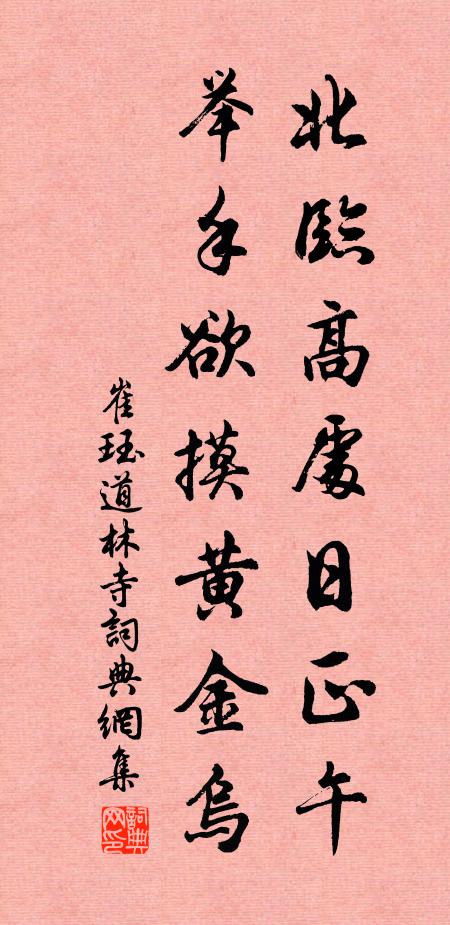 北臨高處日正午
举手欲摸黄金烏
崔珏道林寺詞典網集
詞典网印